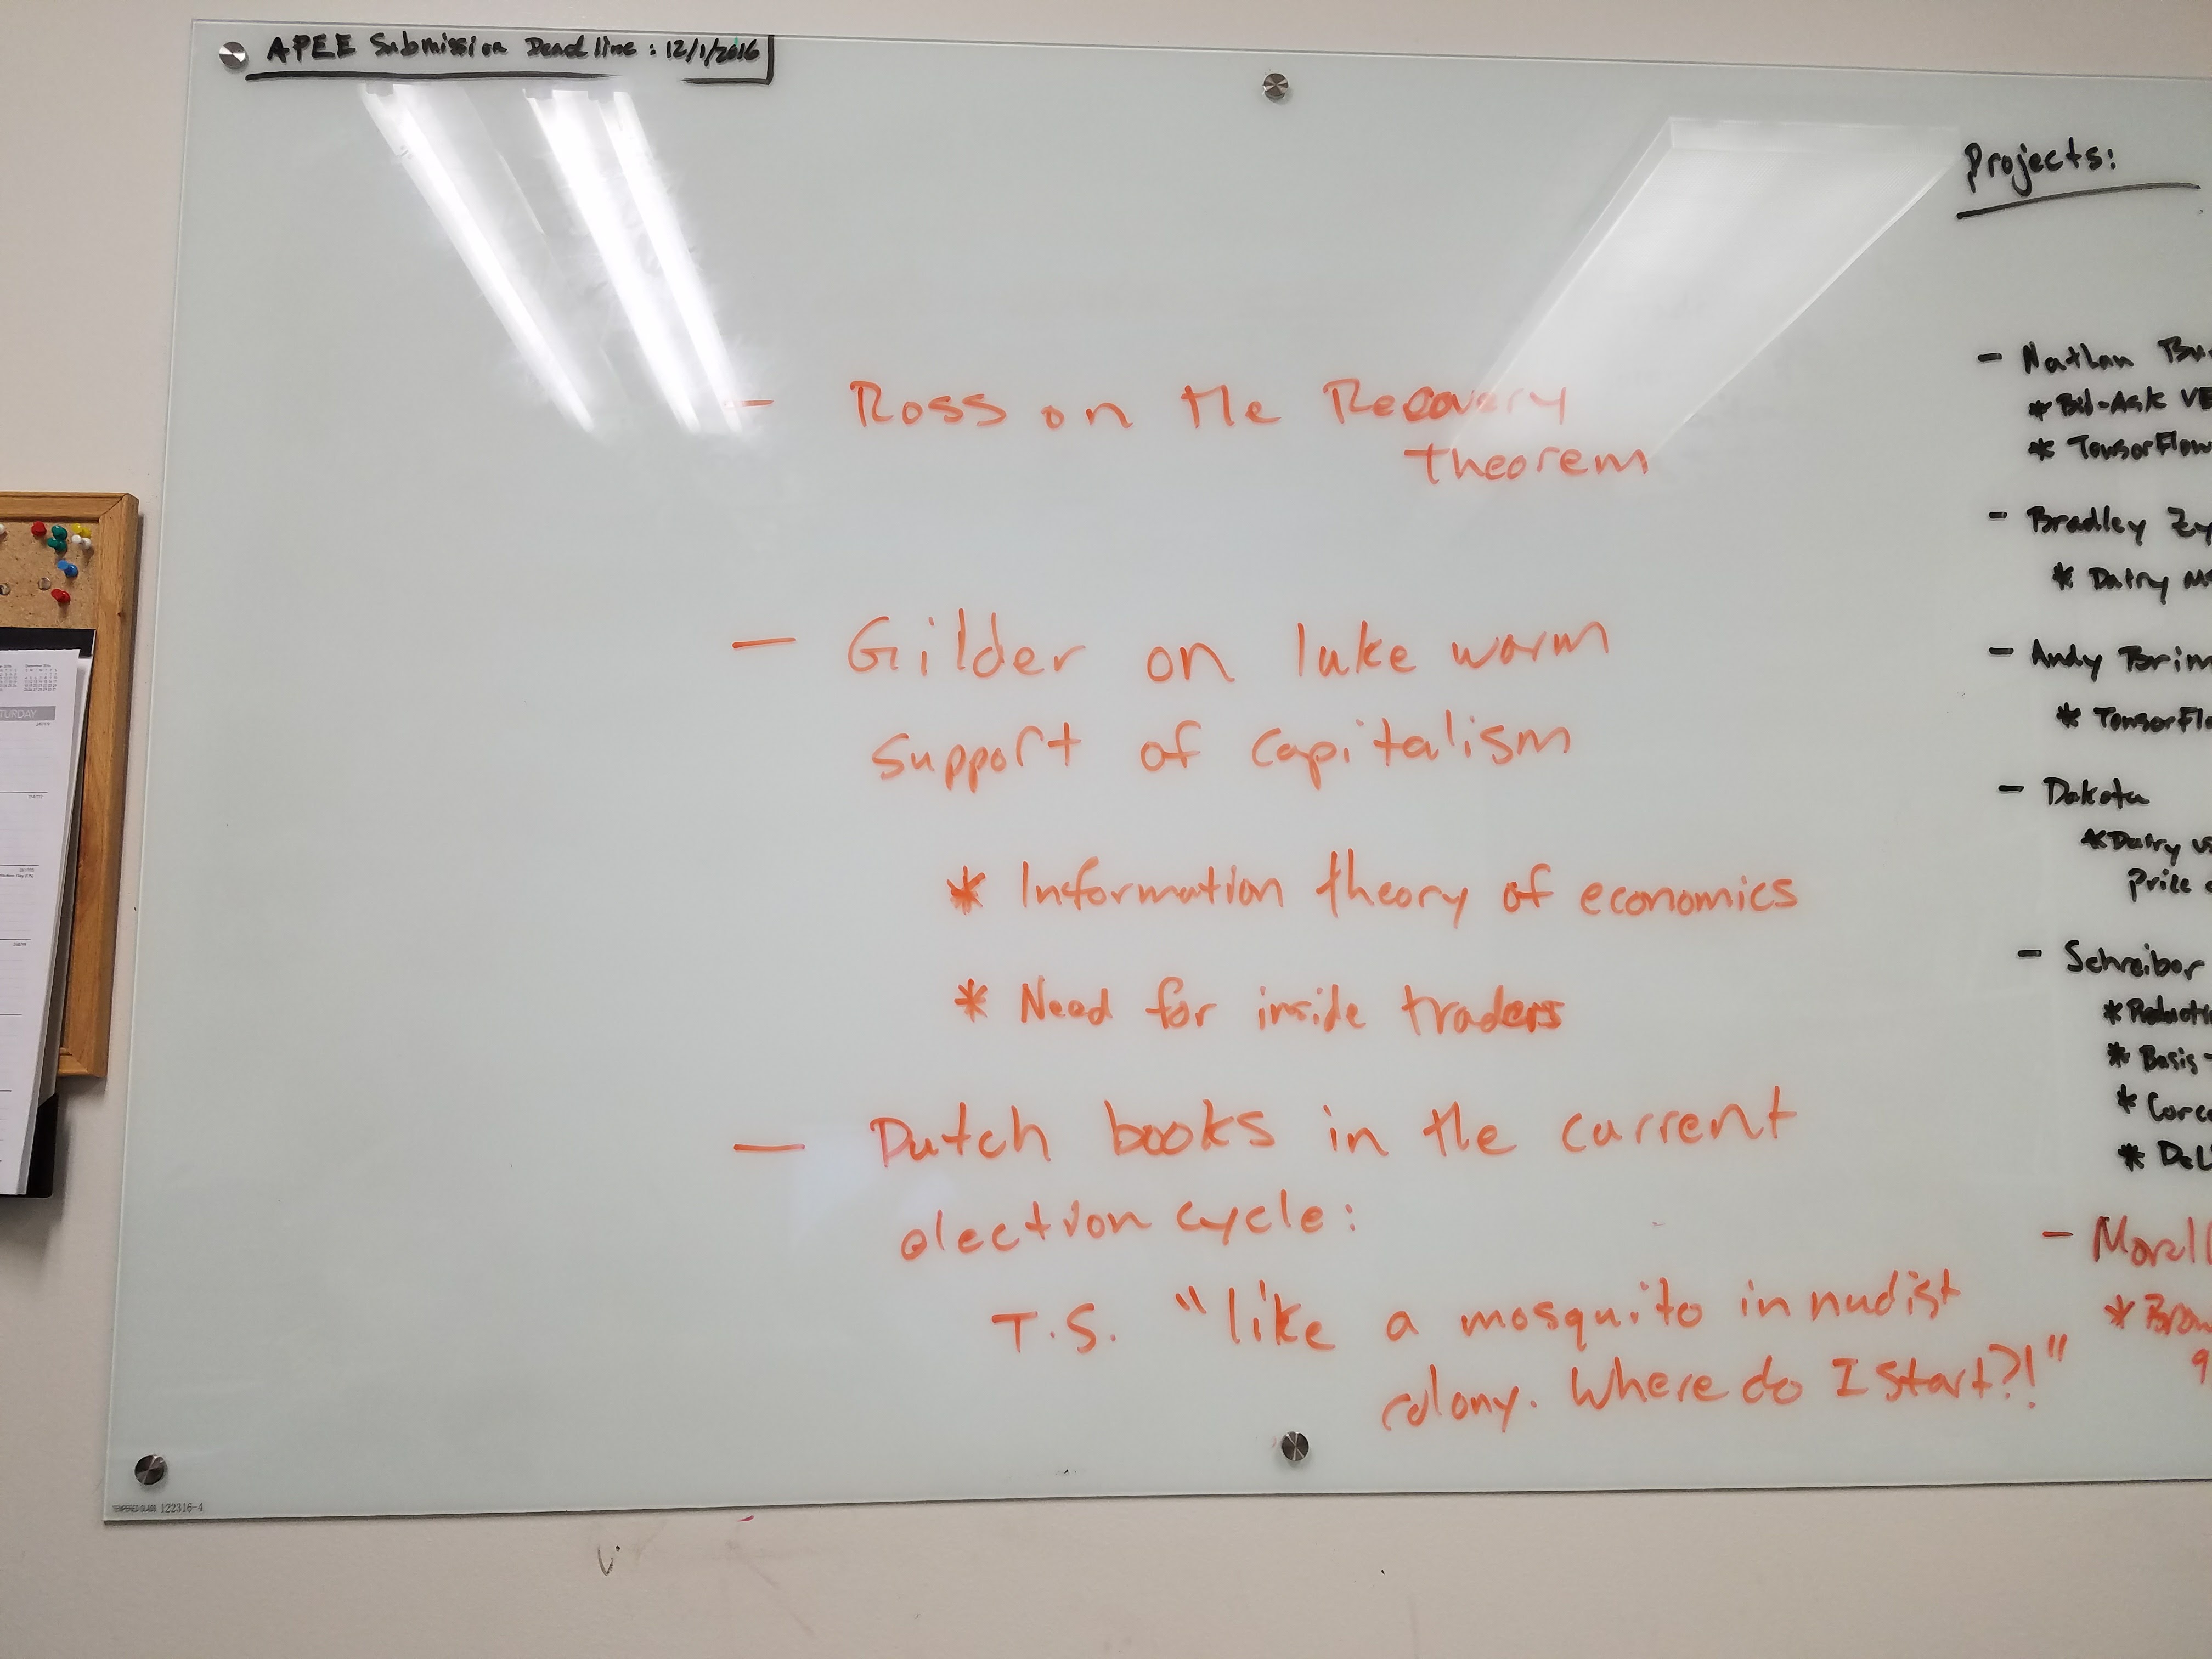 APEE Submission Deadline: 12/1/2016
- Ross on the Recovery
theorem
- Gilder on luke warm
support of capitalism
* Information theory of economics
* Need for inside traders
- Dutch books in the current
election cycle:
T.S. "like a mosquito in nudist
colony. Where do I start?!"
Projects:
- Nathan
* Bid-Ask
* TensorFlow
- Bradley
* Dairy
- Andy
*
- Dakota
* Dairy
Price
- Schreiber
*
* Basis
*
*
-
*
TEMPERED GLASS 122316-4